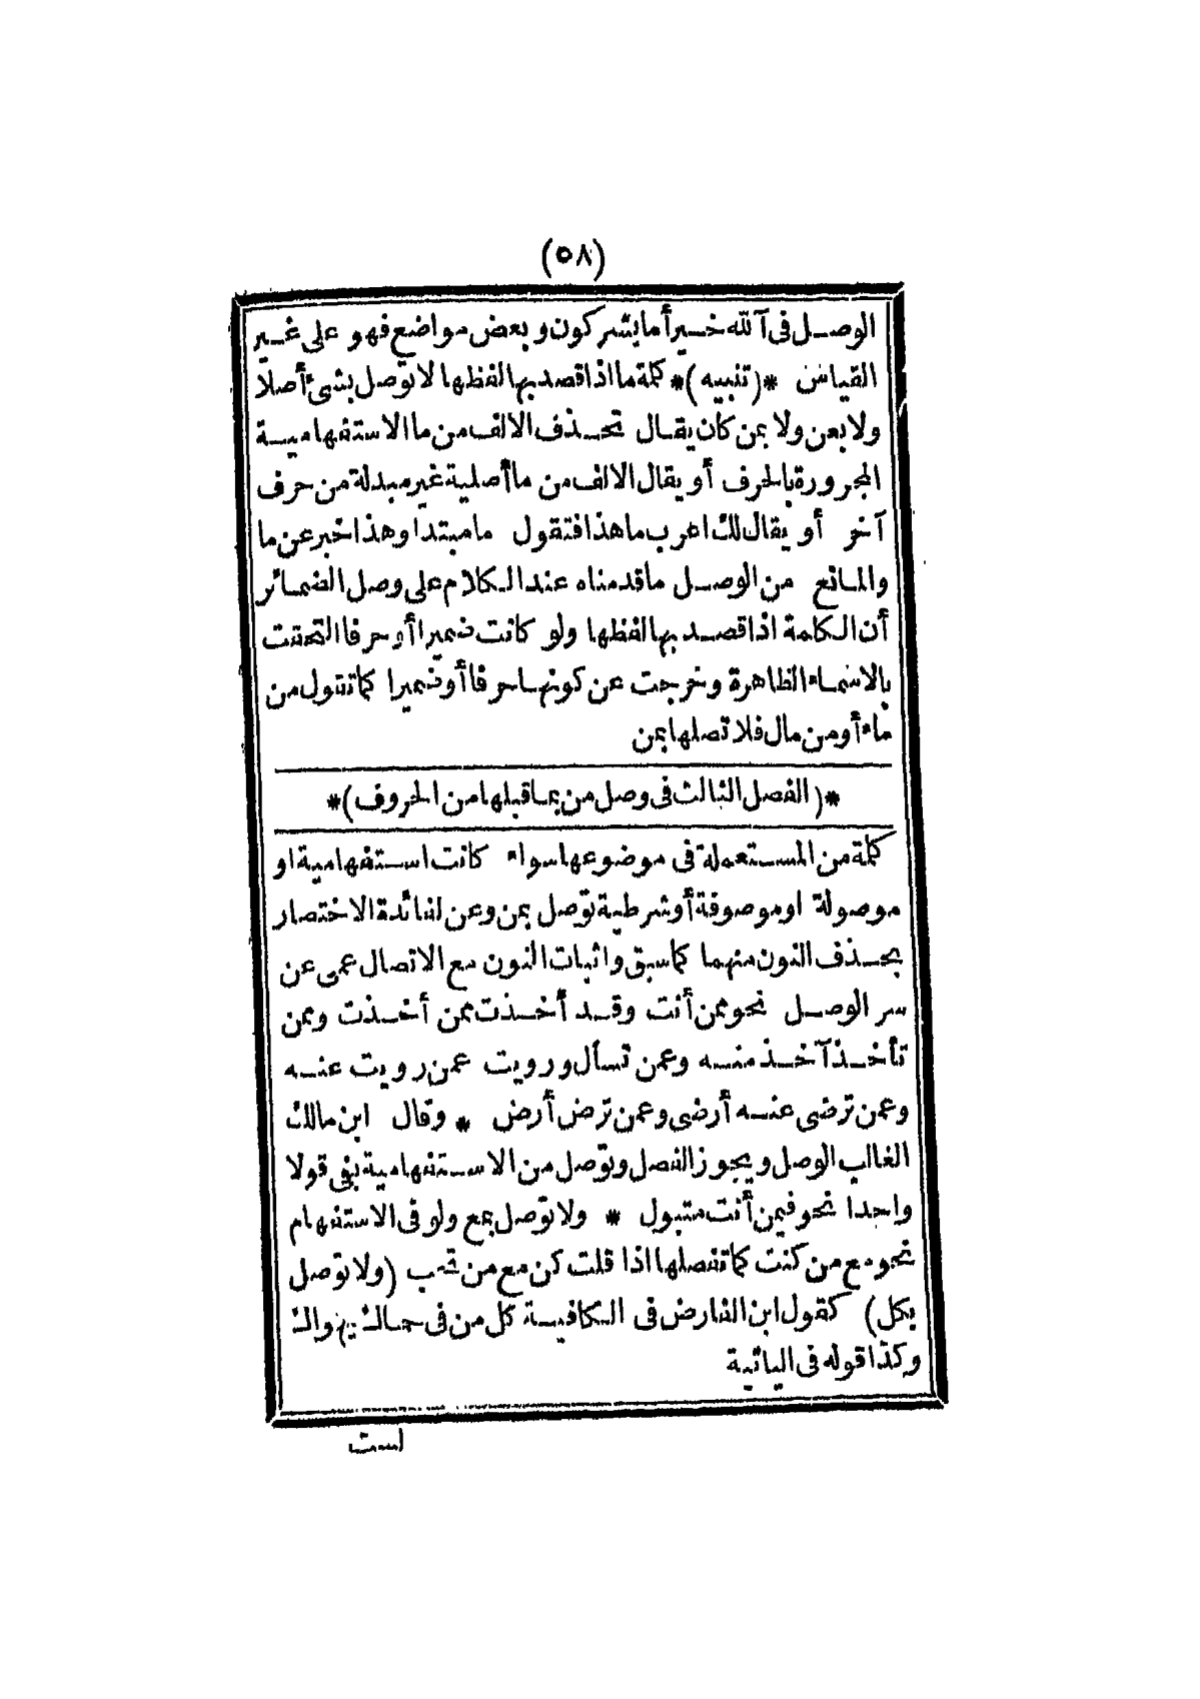 (٥٨)
الوصل فى آلله خير أما يشركون وبعض مواضع فهو على غير
القياس *(تنبيه)* كلمة ما اذا قصد بها لفظها لا توصل بشئ أصلا
ولا بعن ولا بمن كان يقال تحذف الالف من ما الاستفهامية
المجرورة بالحرف أو يقال الالف من ما أصلية غير مبدلة من حرف
آخر أو يقال لك اعرب ما هذا فتقول ما مبتدا وهذا خبر عن ما
والمانع من الوصل ما قدمناه عند الكلام على وصل الضمائر
أن الكلمة اذا قصد بها لفظها ولو كانت ضميرا أو حرفا التحقت
بالاسماء الظاهرة وخرجت عن كونها حرفا أو ضميرا كما تقول من
ماء أو من مال فلا تصلها بمن
*(الفصل الثالث فى وصل من بما قبلها من الحروف)*
كلمة من المستعملة فى موضوعها سواء كانت استفهامية او
موصولة او موصوفة أو شرطية توصل بمن وعن لفائدة الاختصار
بحذف النون منهما كما سبق واثبات النون مع الاتصال عمى عن
سر الوصل نحو ممن أنت وقد أخذت ممن أخذت وممن
تأخذ آخذ منه وعمن تسأل ورويت عمن رويت عنه
وعمن ترضى عنه أرضى وعمن ترض أرض * وقال ابن مالك
الغالب الوصل ويجوز الفصل وتوصل من الاستفهامية بفى قولا
واحدا نحو فيمن أنت متبول * ولا توصل بمع ولو فى الاستفهام
نحو مع من كنت كما تفصلها اذا قلت كن مع من تحب (ولا توصل
بكل) كقول ابن الفارض فى الكافية كل من فى حماك يهواك
وكذا قوله فى اليائية
لست